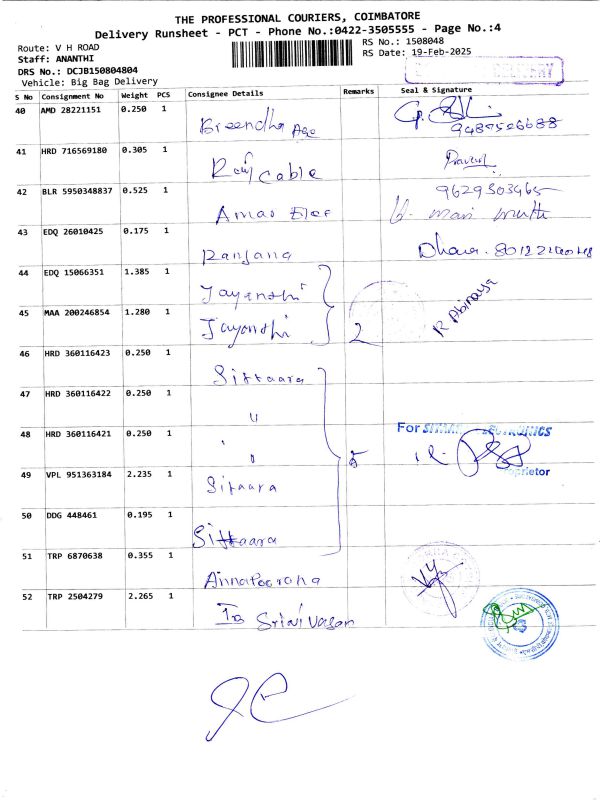 THE PROFESSIONAL COURIERS, COIMBATORE
Delivery Runsheet - PCT - Phone No.:0422-3505555 - Page No.:4
Route: V H ROAD
RS No.: 1508048
Staff: ANANTHI
RS Date: 19-Feb-2025
DRS No.: DCJB150804804
Vehicle: Big Bag Delivery
DELIVERY
S No Consignment No Weight PCS Consignee Details Remarks Seal & Signature
40 AMD 28221151 0.250 1
41 HRD 716569180 0.305 1 Cable
42 BLR 5950348837 0.525 1 9629303465
43 EDQ 26010425 0.175 1 Ranjana Dhara.
44 EDQ 15066351 1.385 1 Jayanthi
45 MAA 200246854 1.280 1 Jayanthi 2 R Abinaya
46 HRD 360116423 0.250 1 Sittaara
47 HRD 360116422 0.250 1 "
48 HRD 360116421 0.250 1 " 5 For
49 VPL 951363184 2.235 1 Sitaara
50 DDG 448461 0.195 1 Sittaara
51 TRP 6870638 0.355 1 Annapoorona
52 TRP 2504279 2.265 1 Srini Vasan